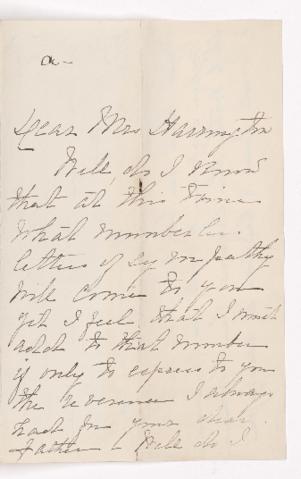 a-
Dear Mrs Harrington
Well do I know
that at this time
what numberless
letters of sympathy
will come to you
yet I feel that I must
add to that number
if only to express to you
the reverence I always
had for your dear
father - Well do I